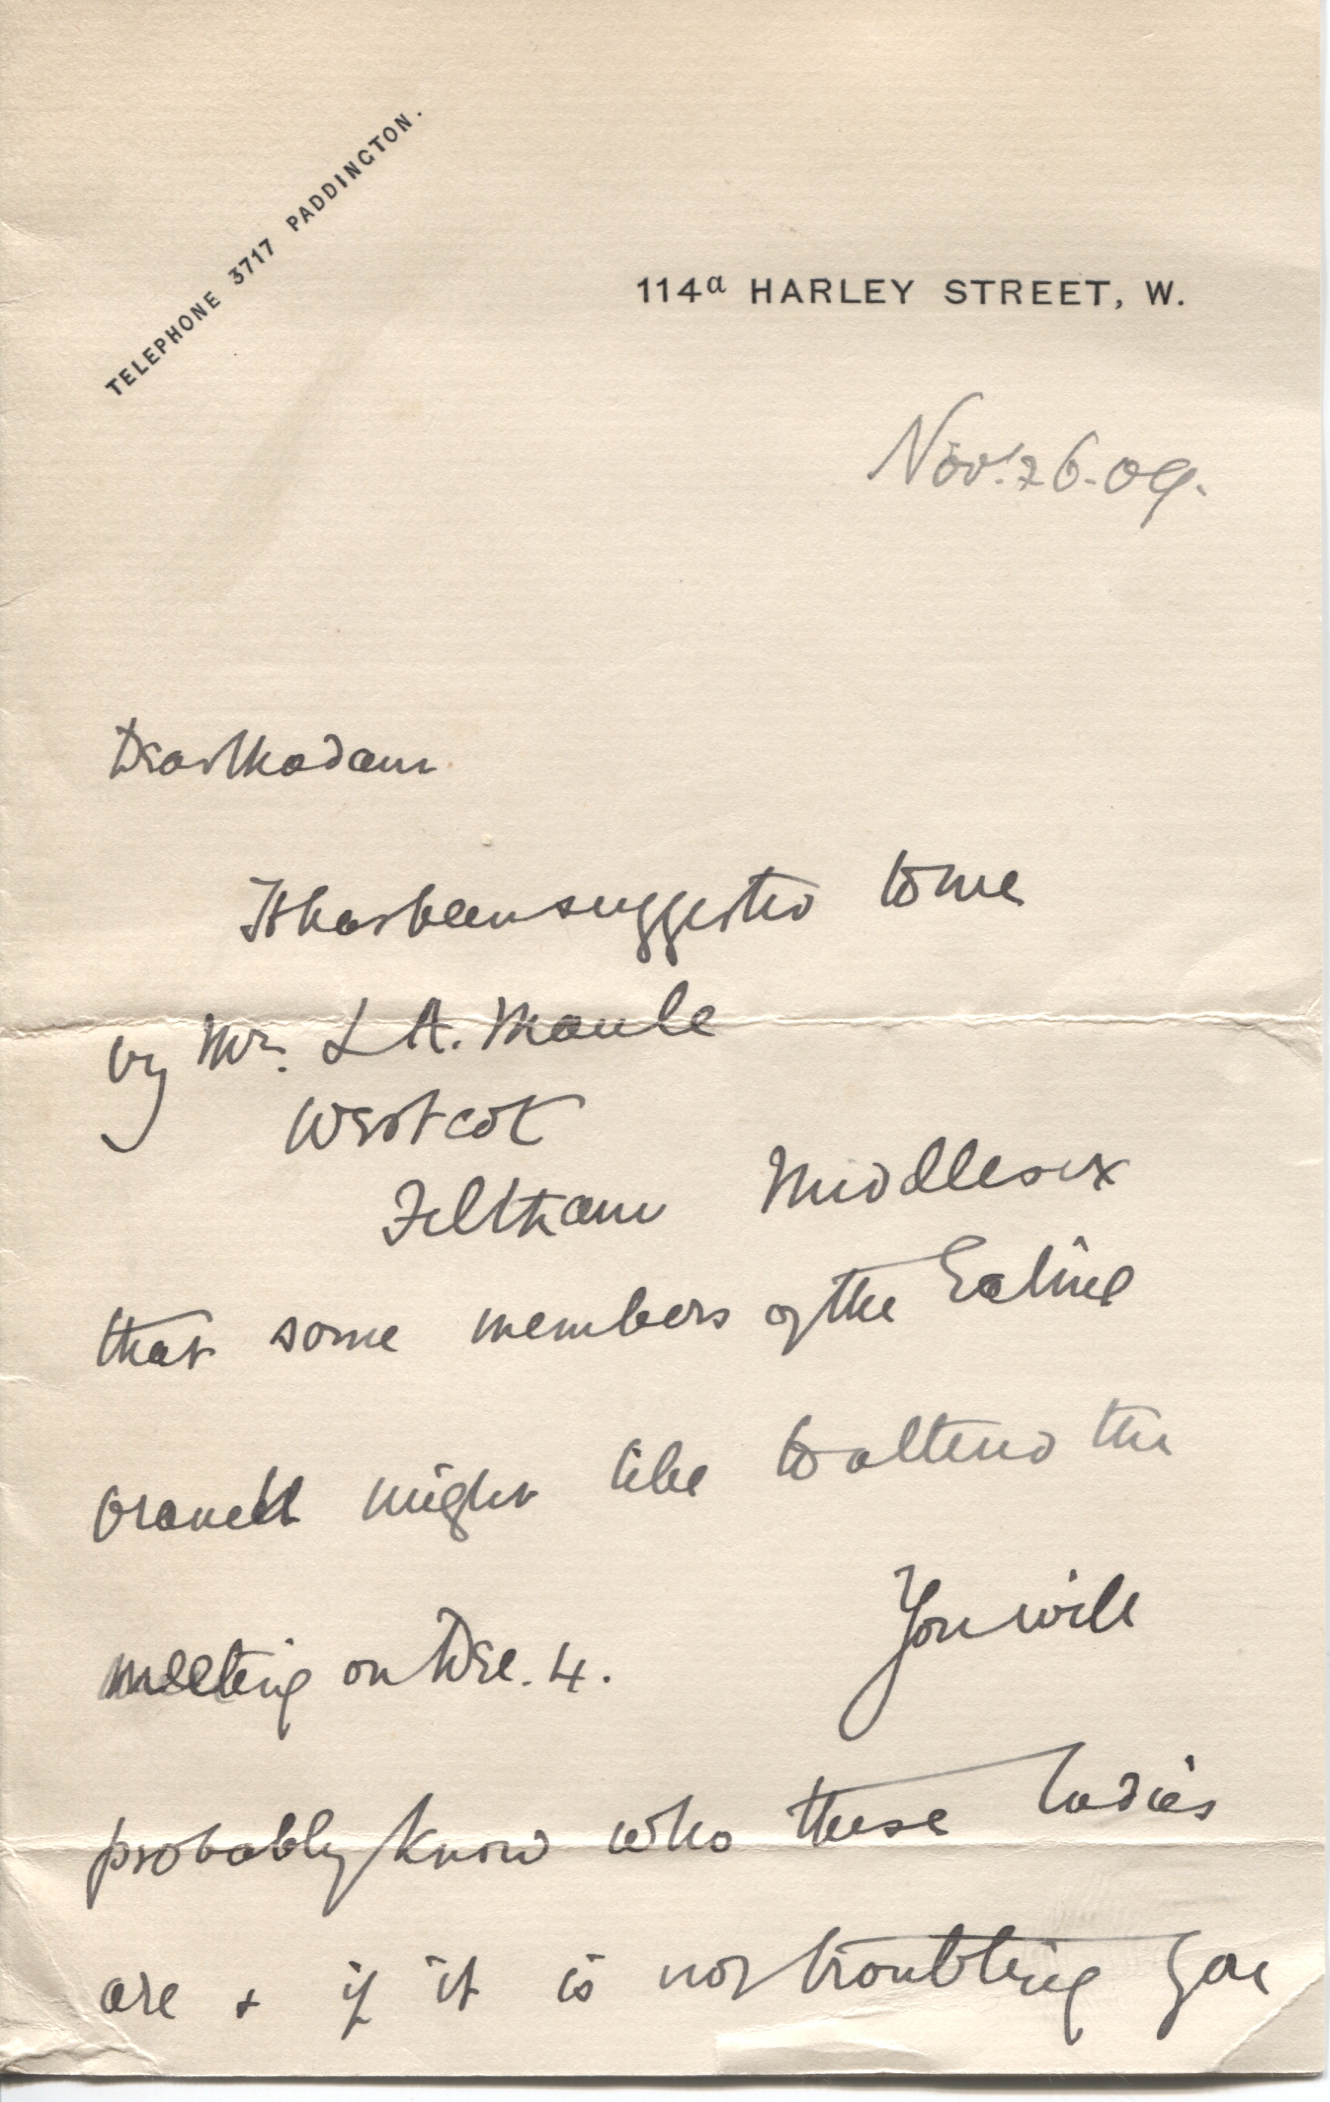 TELEPHONE 3717 PADDINGTON.
114a HARLEY STREET, W.
Nov. 26. 09.
Dear Madam
It has been suggested to me
by Mr. L A. Maule
Westcot
Feltham Middlesex
that some members of the Ealing
branch might like to attend the
meeting on Dec. 4. You will
probably know who these ladies
are + if it is not troubling you